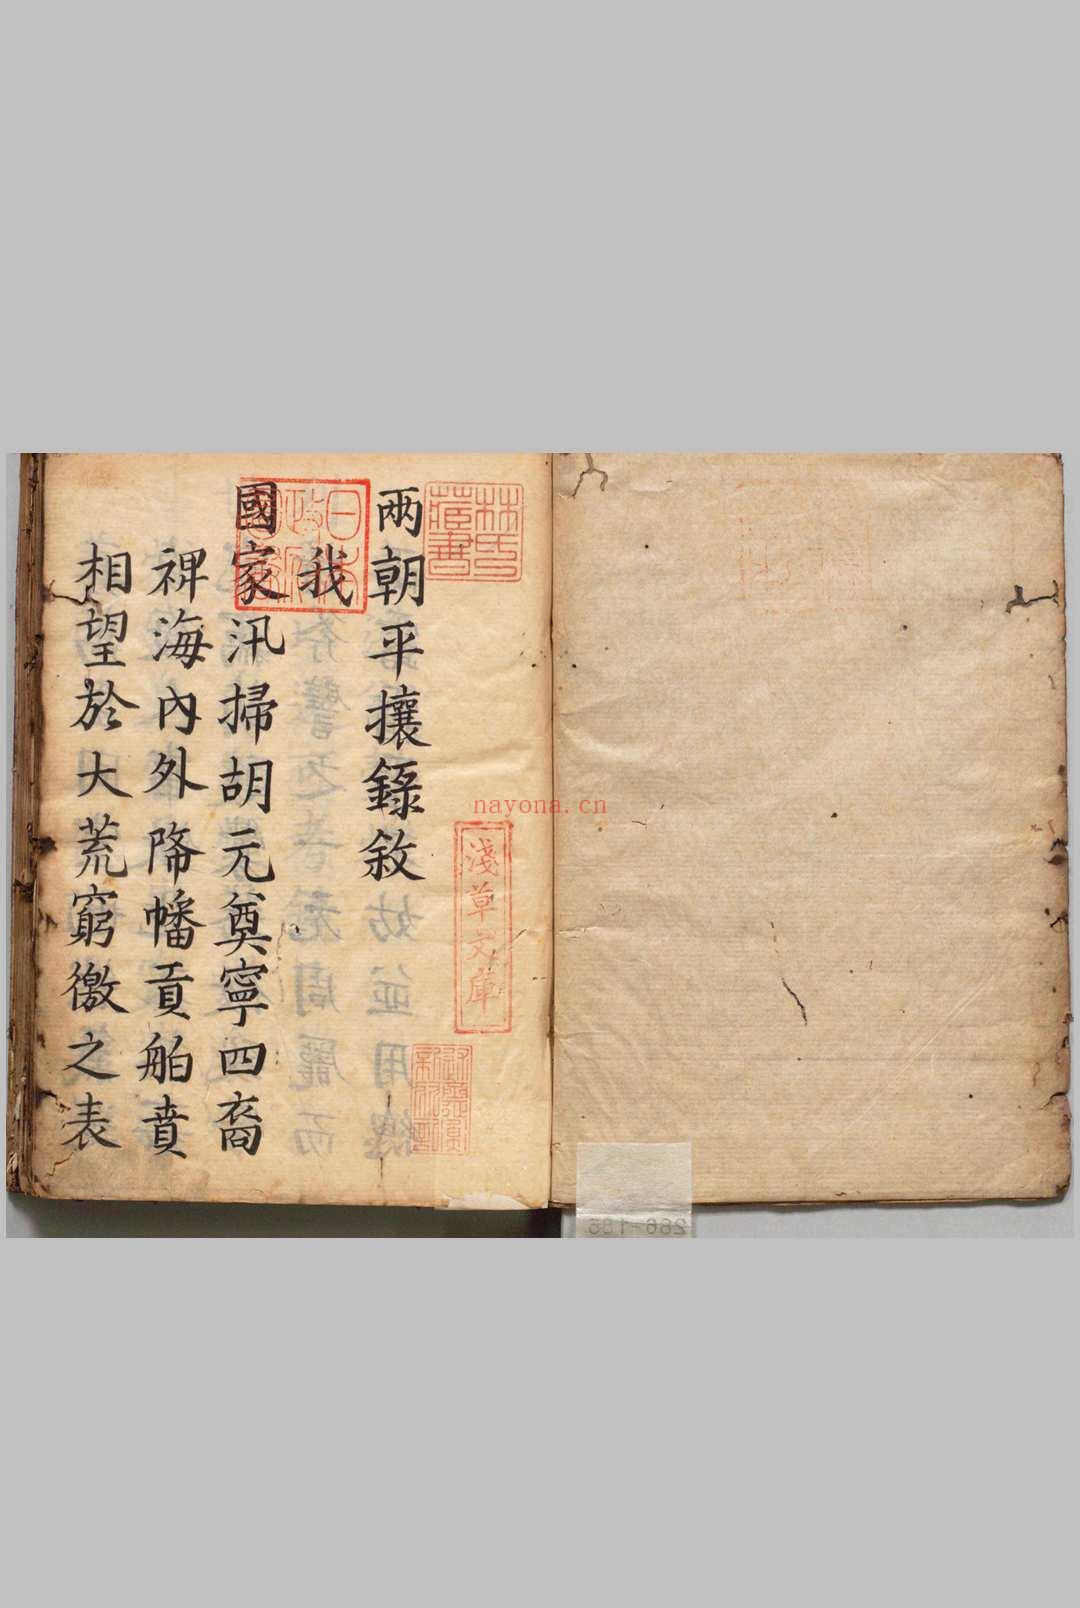 林氏藏書
日本政府圖書
兩朝平攘錄敘
我
國家汛掃胡元奠寧四裔
裨海內外降幡貢舶賁
相望於大荒窮徼之表
淺草文庫
nayona.cn
266-186